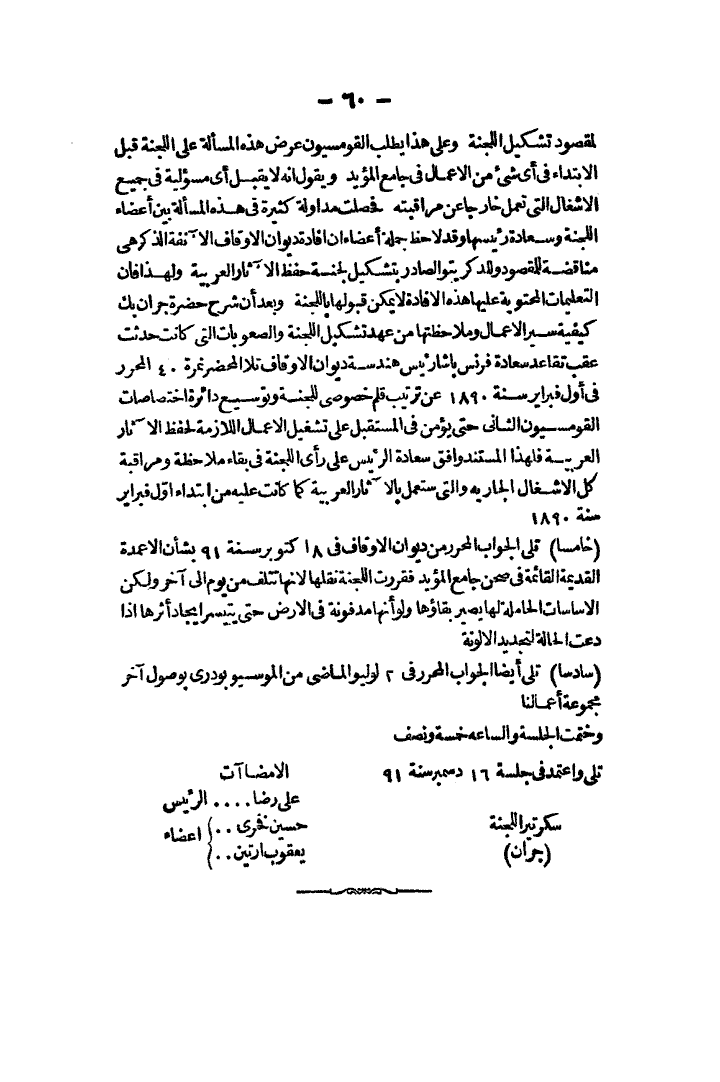 — ٦٠ —
لمقصود تشكيل اللجنة وعلى هذا يطلب القومسيون عرض هذه المسألة على اللجنة قبل
الابتداء فى أى شئ من الاعمال فى جامع المؤيد ويقول انه لا يقبل أى مسؤلية فى جميع
الاشغال التى تعمل خارجا عن مراقبته فحصلت مداولة كثيرة فى هذه المسألة بين أعضاء
اللجنة وسعادة رئيسها وقد لاحظ جملة أعضاء ان افادة ديوان الاوقاف الآنفة الذكر هى
مناقضة للمقصود وللدكريتو الصادر بتشكيل لجنة حفظ الآثار العربية ولهذا فان
التعليمات المحتوية عليها هذه الافادة لا يمكن قبولها باللجنة وبعد أن شرح حضرة جران بك
كيفية سير الاعمال وملاحظتها من عهد تشكيل اللجنة والصعوبات التى كانت حدثت
عقب تقاعد سعادة فرنس باشا رئيس هندسة ديوان الاوقاف تلا المحضر نمرة ٤٠ المحرر
فى أول فبراير سنة ١٨٩٠ عن ترتيب قلم خصوصى للجنة وتوسيع دائرة اختصاصات
القومسيون الثانى حتى يؤمن فى المستقبل على تشغيل الاعمال اللازمة لحفظ الآثار
العربية فلهذا المستند وافق سعادة الرئيس على رأى اللجنة فى بقاء ملاحظة ومراقبة
كل الاشغال الجاريه والتى ستعمل بالآثار العربية كما كانت عليه من ابتداء اول فبراير
سنة ١٨٩٠
(خامسا) تلى الجواب المحرر من ديوان الاوقاف فى ١٨ كتوبر سنة ٩١ بشأن الاعمدة
القديمة القائمة فى صحن جامع المؤيد فقررت اللجنة نقلها لانها تتلف من يوم الى آخر ولكن
الاساسات الحاملة لها يصير بقاؤها ولو أنها مدفونة فى الارض حتى يتيسر ايجاد أثرها اذا
دعت الحالة لتجديد الالونة
(سادسا) تلى أيضا الجواب المحرر فى ٢ لوليو الماضى من الموسيو بودرى بوصول آخر
مجموعة أعمالنا
وختمت الجلسة والساعه خمسة ونصف
تلى واعتمد فى جلسة ١٦ دسمبر سنة ٩١
الامضاآت
على رضا .... الرئيس
حسين فخرى ..
يعقوب ارتين ..
اعضاء
سكرتير اللجنة
(جران)